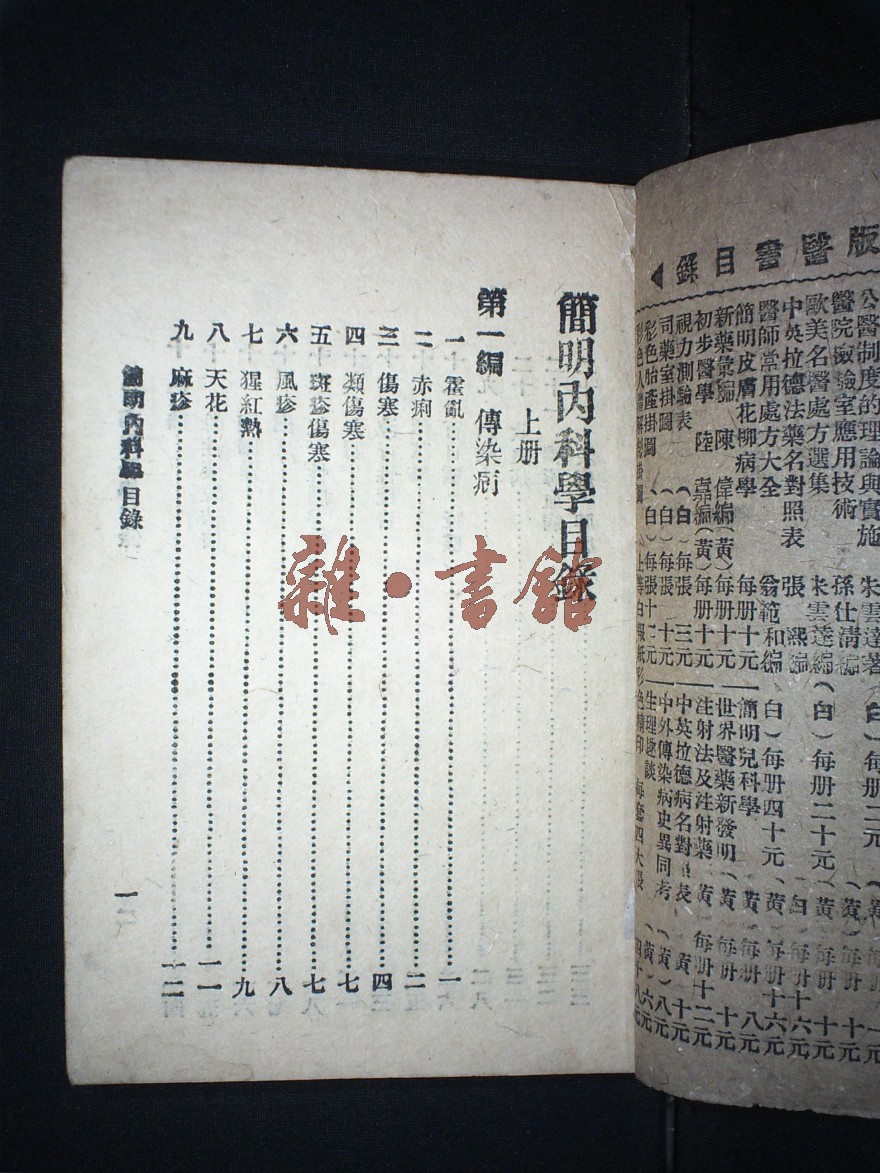 版醫書目錄◀
公醫制度的理論與實施 朱雲達著 (白)每册二元
醫院檢驗室應用技術 孫仕清編
歐美名醫處方選集 朱雲達編(白)每册二十元
中英拉德法藥名對照表 張熙編
醫師常用處方大全 翁範和編 (白)每册四十元
簡明皮膚花柳病學 每册十元
新藥彙編 陳偉編(黃)每册十元
初步醫學 陸嘉編(黃)每册十元
視力測驗表 (白)每張三元
司藥室掛圖 (白)每張十元
彩色胎產掛圖 (白)每張十二元
簡明兒科學 (黃)每册八元
世界醫藥新發明 (黃)每册十元
注射法及注射藥 (黃)每册十二元
中英拉德病名對照表 (黃)十元
中外傳染病史異同考 (黃)八元
生理趣談 (黃)六元
簡明內科學目錄
上册
第一編 傳染病
一 霍亂 一
二 赤痢 二
三 傷寒 四
四 類傷寒 七
五 斑疹傷寒 七
六 風疹 八
七 猩紅熱 九
八 天花 一一
九 麻疹 一二
簡明內科學目錄
一
雜·書館